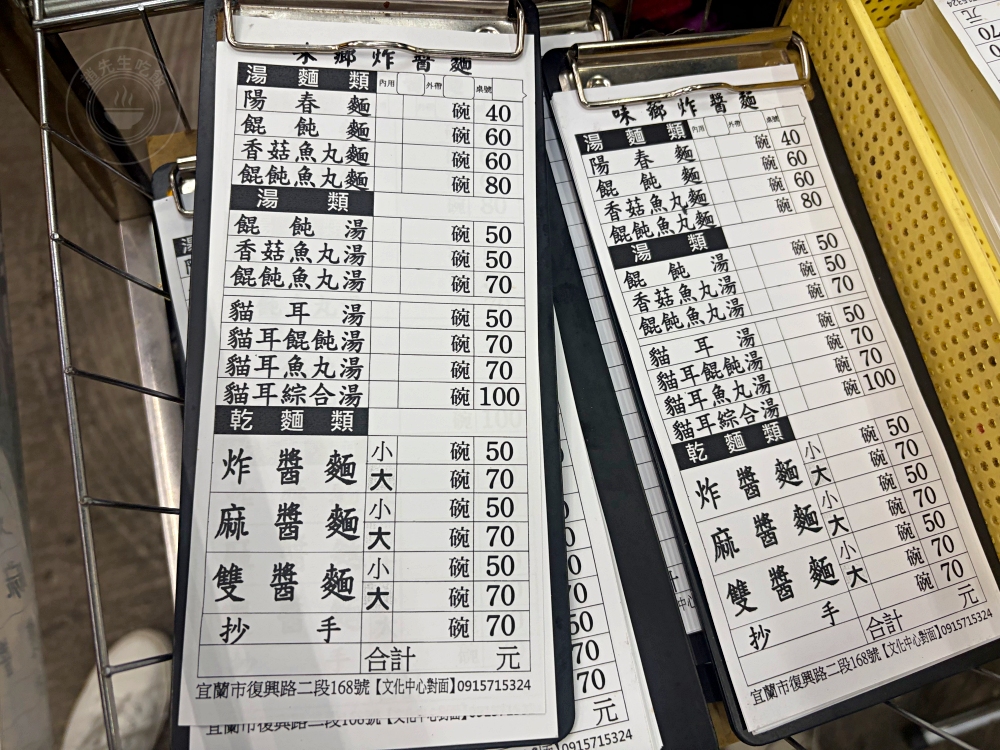 味鄉炸醬麵
湯麵類 內用 外帶 桌號
陽春麵 碗 40
餛飩麵 碗 60
香菇魚丸麵 碗 60
餛飩魚丸麵 碗 80
湯類
餛飩湯 碗 50
香菇魚丸湯 碗 50
餛飩魚丸湯 碗 70
貓耳湯 碗 50
貓耳餛飩湯 碗 70
貓耳魚丸湯 碗 70
貓耳綜合湯 碗 100
乾麵類
炸醬麵 小 碗 50
大 碗 70
麻醬麵 小 碗 50
大 碗 70
雙醬麵 小 碗 50
大 碗 70
抄手 碗 70
合計 元
宜蘭市復興路二段168號【文化中心對面】0915715324
味鄉炸醬麵
湯麵類 內用 外帶 桌號
陽春麵 碗 40
餛飩麵 碗 60
香菇魚丸麵 碗 60
餛飩魚丸麵 碗 80
湯類
餛飩湯 碗 50
香菇魚丸湯 碗 50
餛飩魚丸湯 碗 70
貓耳湯 碗 50
貓耳餛飩湯 碗 70
貓耳魚丸湯 碗 70
貓耳綜合湯 碗 100
乾麵類
炸醬麵 小 碗 50
大 碗 70
麻醬麵 小 碗 50
大 碗 70
雙醬麵 小 碗 50
大 碗 70
抄手 碗 70
合計 元
宜蘭市復興路二段168號【文化中心對面】0915715324
50
70
70
元
0915715324